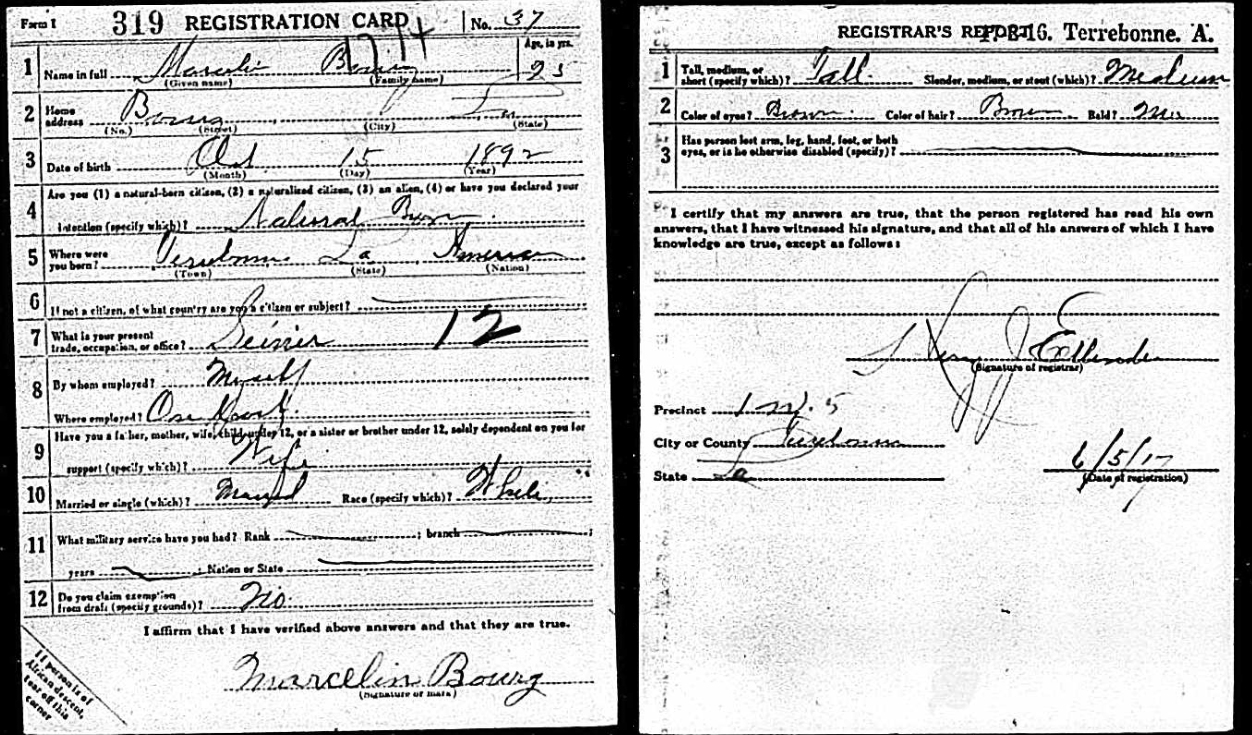 Form 1 319 REGISTRATION CARD No. 37
1 Name in full Marcelin Bourg Age, in yrs. 25
(Given name) (Family name)
2 Home address Bourg La
(No.) (Street) (City) (State)
3 Date of birth Oct 15 1892
(Month) (Day) (Year)
Are you (1) a natural-born citizen, (2) a naturalized citizen, (3) an alien, (4) or have you declared your
4 intention (specify which)? Natural Born
5 Where were you born? Terrebonne La American
(Town) (State) (Nation)
6 If not a citizen, of what country are you a citizen or subject?
7 What is your present trade, occupation, or office? 12
8 By whom employed? Myself
Where employed?
Have you a father, mother, wife, child under 12, or a sister or brother under 12, solely dependent on you for
9 support (specify which)? Wife
10 Married or single (which)? Married Race (specify which)? White
11 What military service have you had? Rank ; branch ;
years ; Nation or State
12 Do you claim exemption from draft (specify grounds)? No
I affirm that I have verified above answers and that they are true.
Marcelin Bourg
(Signature or mark)
If person is of
African descent,
tear off this
corner
REGISTRAR'S 16. Terrebonne. A.
1 Tall, medium, or short (specify which)? Tall Slender, medium, or stout (which)? Medium
2 Color of eyes? Brown Color of hair? Brown Bald? No
3 Has person lost arm, leg, hand, foot, or both
eyes, or is he otherwise disabled (specify)?
I certify that my answers are true, that the person registered has read his own
answers, that I have witnessed his signature, and that all of his answers of which I have
knowledge are true, except as follows:
J Ellender
(Signature of registrar)
Precinct 5
City or County Terrebonne
State La
6/5/17
(Date of registration)